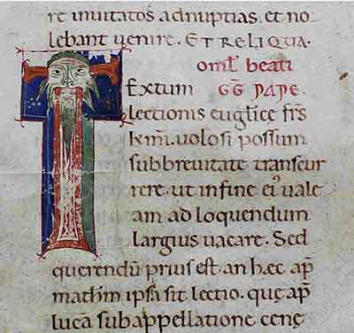 re inuitatos ad nuptias. et no
lebant uenire. ET RELIQUA.
omł beati
Textum GG PAPE.
lectionis euglice frs
kmi. uolo si possum
sub breuitate transcur
rere. ut in fine ei' uale
am ad loquendum
largius uacare. Sed
querendū prius est. an hec ap
matheū ipsa sit lectio. que ap
lucā sub appellatione cenę